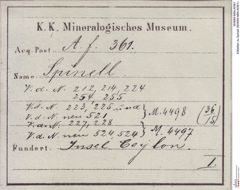 K. K. Mineralogisches Museum.
Acq. Post A. f. 361.
Name Spinell
V. d. N. 212, 214, 224
254 255
V. d. N. 223, 225 und
V. d. N. neu 521 } M. 4498 (36/15)
V. d. N. 227, 228
V. d. N. neu 524 524 } M. 4497
Fundort: Insel Ceylon.
I.